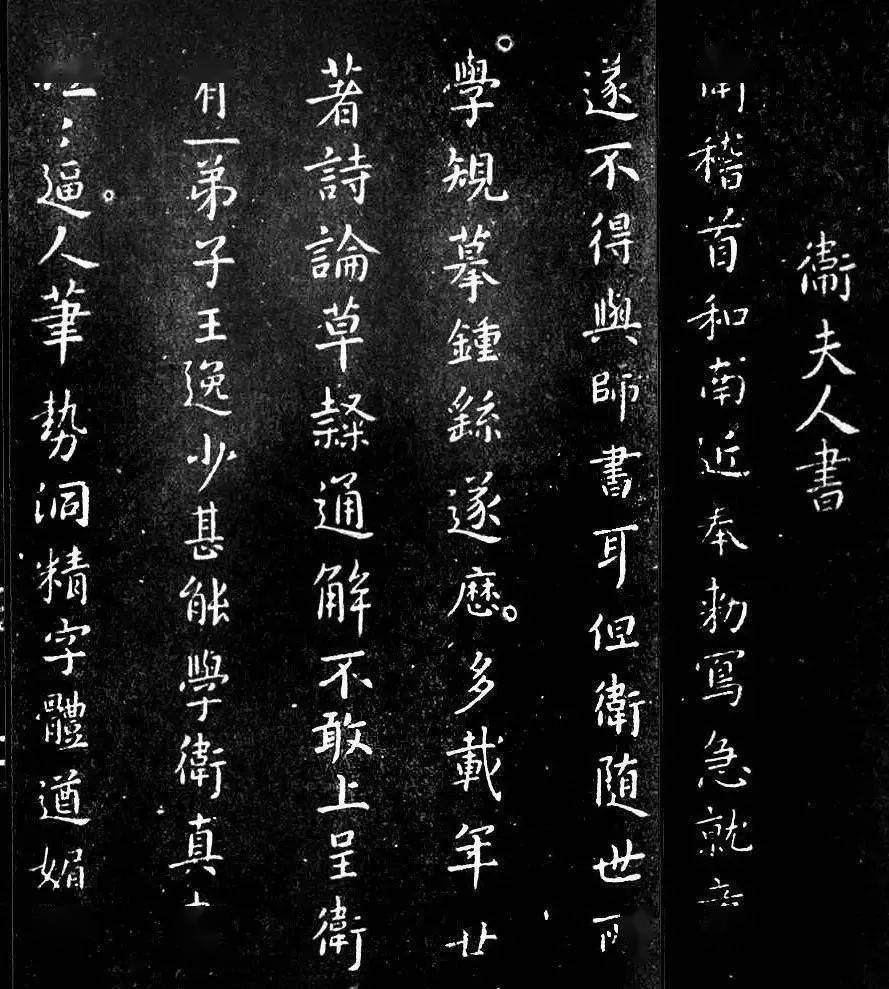 衛夫人書
稽首和南近奉勅寫急就
遂不得與師書耳但衛随世所
學䂓摹鍾繇遂厯多載年廿
著詩論草隸通解不敢上呈衛
有一弟子王逸少甚能學衛真
逼人筆勢洞精字體遒媚